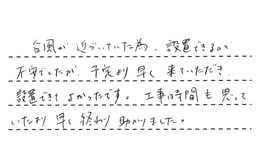 台風が近づいていた為、設置できるか
不安でしたが、予定より早く来ていただき、
設置できてよかったです。工事時間も思って
いたより早く終わり助かりました。